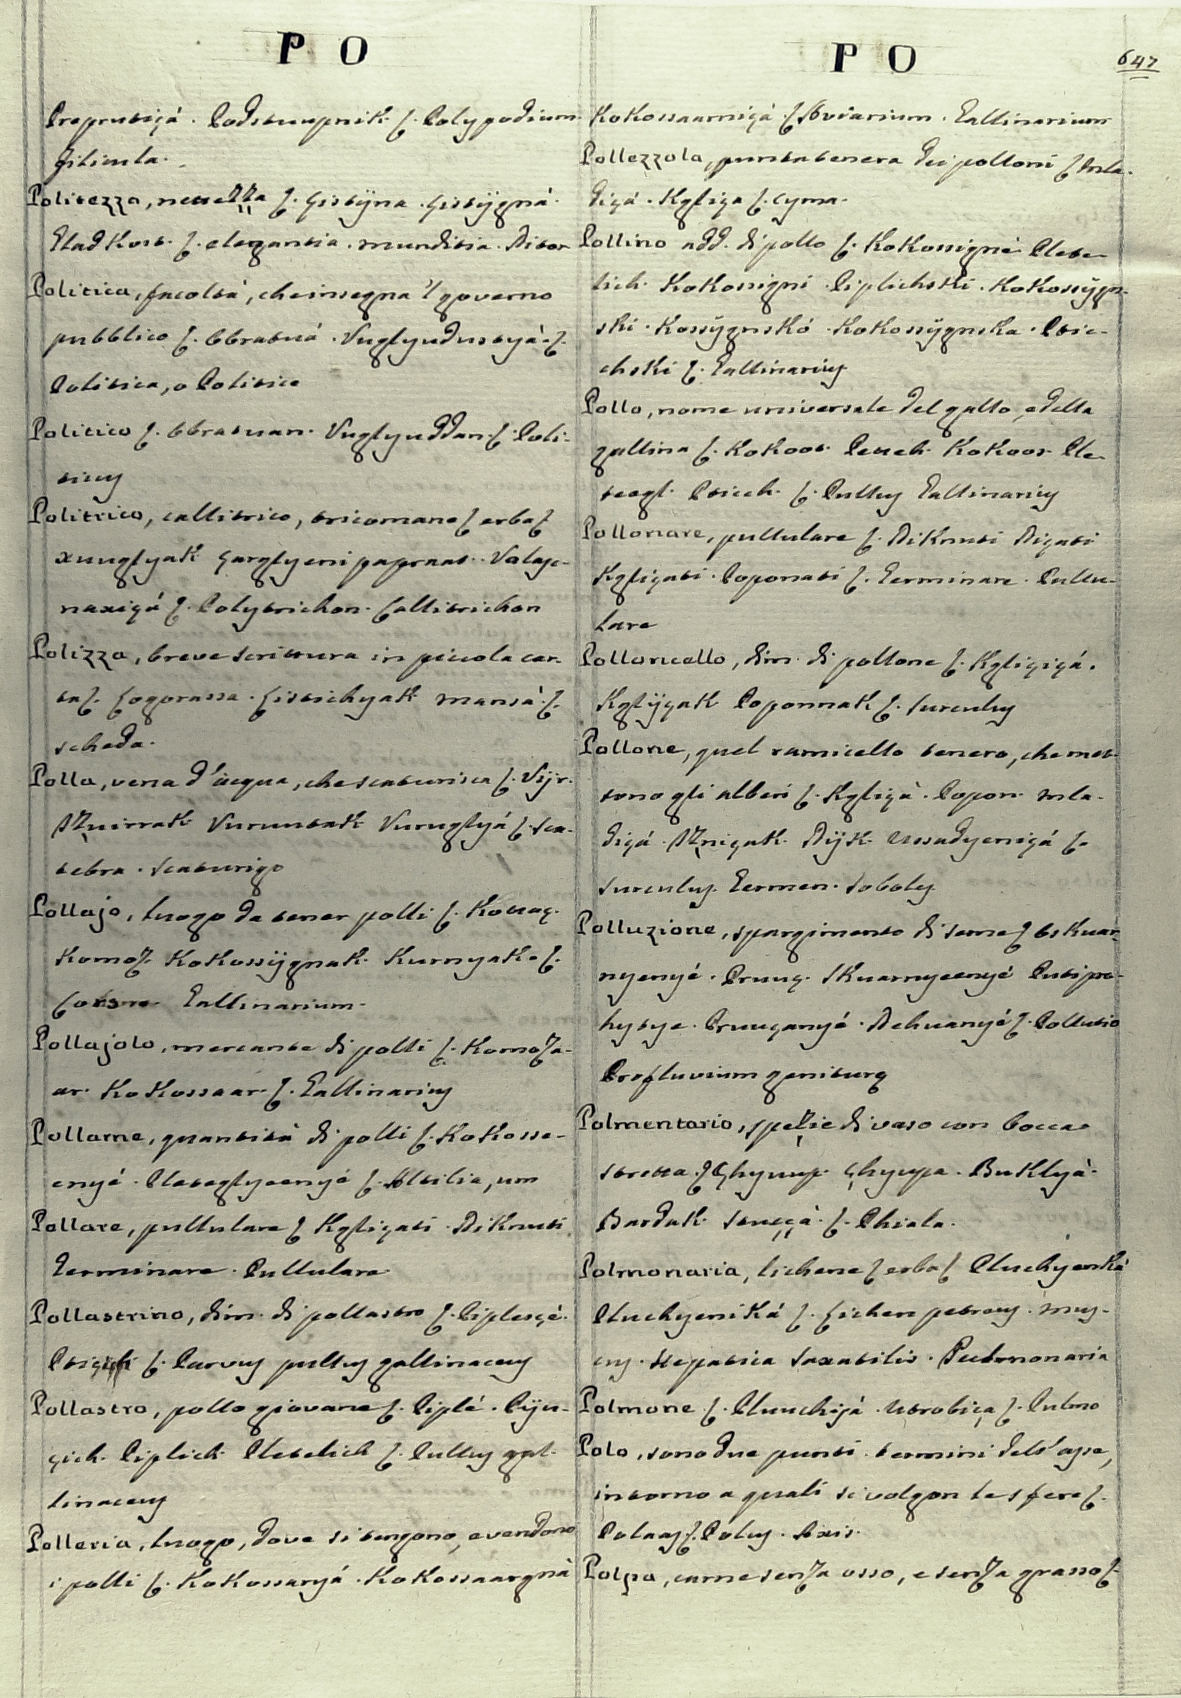 P O
Praprutiçá. Podstuupnik ſ. Polypodium
filicula.
Politezza, nettezza ſ. Çistÿna. Çistÿgná.
Gladkost. ſ. elegantia. munditia. Nitor
Politica, facoltà, che insegna 'l governo
pubblico ſ. Obratuá. Vuglyudustyá. ſ.
Politica, o Politice
Politico ſ. Obratuan. Vuglyuddan. ſ. Poli-
ticus
Politrico, callitrico, tricomano ſ erba ſ
xuuglyak Garglyeni papraat. Valaſe-
naxiçá ſ. Polytrichon. Callitrichon
Polizza, breve scrittura in piccola car-
ta ſ. Cogorassa. Listichyak mansá. ſ.
scheda.
Polla, vena d'acqua, che scaturisca ſ. Vijr.
Izuirrak Vuruutak Vuruglyá ſ. Sca-
tebra. scaturigo
Pollajo, luogo da tener polli ſ. Kotaaç.
Komoz. Kokossÿgnak. Kurnyak. ſ.
Gallinarium.
Pollajolo, mercante di polli ſ. Komoza-
ar. Kokossaar. ſ. Gallinarius
Pollame, quantità di polli ſ. Kokosse-
enyé. Pleteglyeenyé ſ. Altilia, um
Pollare, pullulare ſ Kgliçati. Niknuti
Germinare. Pullulare
Pollastrino, dim. di pollastro ſ. Piplesçé.
ſ. Parvus pullus gallinaceus
Pollastro, pollo giovane ſ. Piplé. Pÿu-
çich. Piplich Pletelich ſ. Pullus gal-
linaceus
Polleria, luogo, dove si tengono, e vendono
i polli ſ. Kokossaryá. Kokossaargná
P O
647
Kokossaarniçá ſ. Aviarium. Gallinarium
Pollezzola, punta tenera dei polloni ſ Mla-
diçá. Kgliça ſ. Cyma.
Pollino add. di pollo ſ. Kokossigné Plete-
lich Kokossigni Piplichski. Kokossÿgn-
ski. Kossÿgnskó. Kokossÿgnska. Ptic-
chski ſ. Gallinarius
Pollo, nome universale del gallo, e della
gallina ſ. Kokoot. Peteh. Kokoos. Ple-
teogl. Pticch. ſ. Pullus Gallinarius
Pollonare, pullulare ſ. Niknuti Niçati
Kgliçati. Poponati ſ. Germinare. Pullu-
lare
Polloncello, dim. di pollone ſ. Kgliçiçá.
Kglÿçak Poponnak ſ. Surculus
Pollone, quel ramicello tenero, che met-
tono gli alberi ſ. Kgliçá. Popon. Mla-
diçá. Izniçak. Nÿk Ussadyeniçá ſ.
Surculus. Germen. Soboles
Polluzione, spargimento di seme ſ Oskuar-
nyenyé. Pruuç. Skuarnyeenyé Putipro-
hytye. Pruuçanyé. Dehuanyé ſ. Pollutio
Profluvium geniturę
Polmentario, spezie di vaso con bocca
stretta ſ Çhyuup. Çhyupa. Buklyá.
Bardak. Stuççá. ſ. Phiala.
Polmonaria, lichene ſ erba ſ Pluchyenská
Pluchyeniká ſ. Lichen petreus. Mus-
cus. Hepatica saxatilis. Pulmonaria
Polmone ſ. Pluuchijá. Utrobiça ſ. Pulmo
Polo, sono due punti termini dell' asse,
intorno a quali si volgon le sfere ſ.
Polaas ſ. Polus. Axis.
Polpa, carne senza osso, e senza grasso ſ.